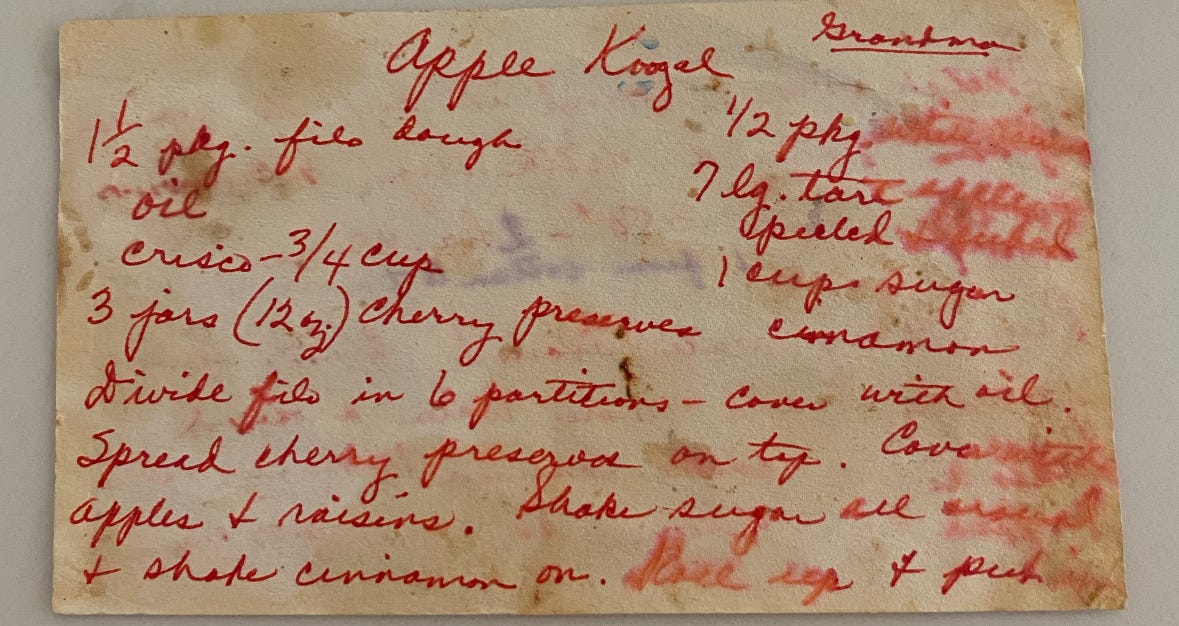 Grandma
Apple Koogal
1 1/2 pkg. filo dough
oil
crisco - 3/4 cup
3 jars (12 oz.) cherry preserves
1/2 pkg.
7 lg. tart apples
peeled &
1 cups sugar
cinnamon
Divide filo in 6 partitions - cover with oil.
Spread cherry preserves on top. Cover with
apples & raisins. Shake sugar all around
& shake cinnamon on. Roll up &